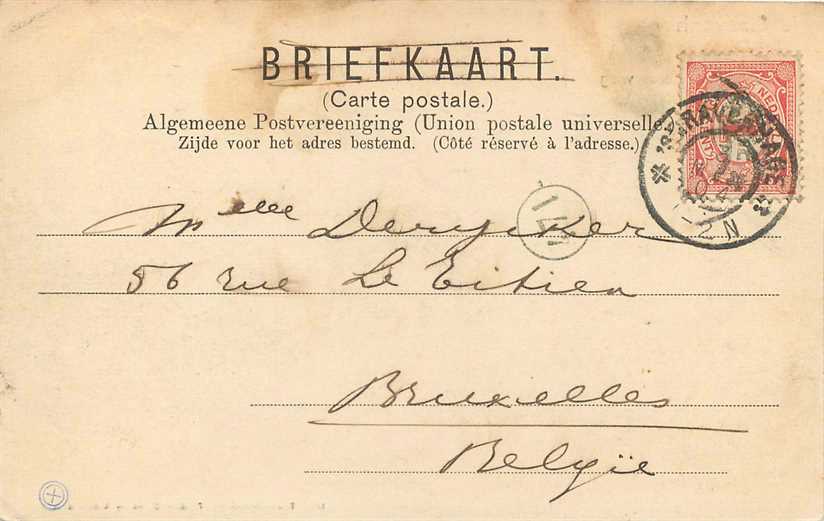 BRIEFKAART.
(Carte postale.)
Algemeene Postvereeniging (Union postale universelle
Zijde voor het adres bestemd. (Côté réservé à l'adresse.)
'S GRAVENHAGE
1-2N
Melle Derycker
56 rue Le Titien
Bruxelles
België